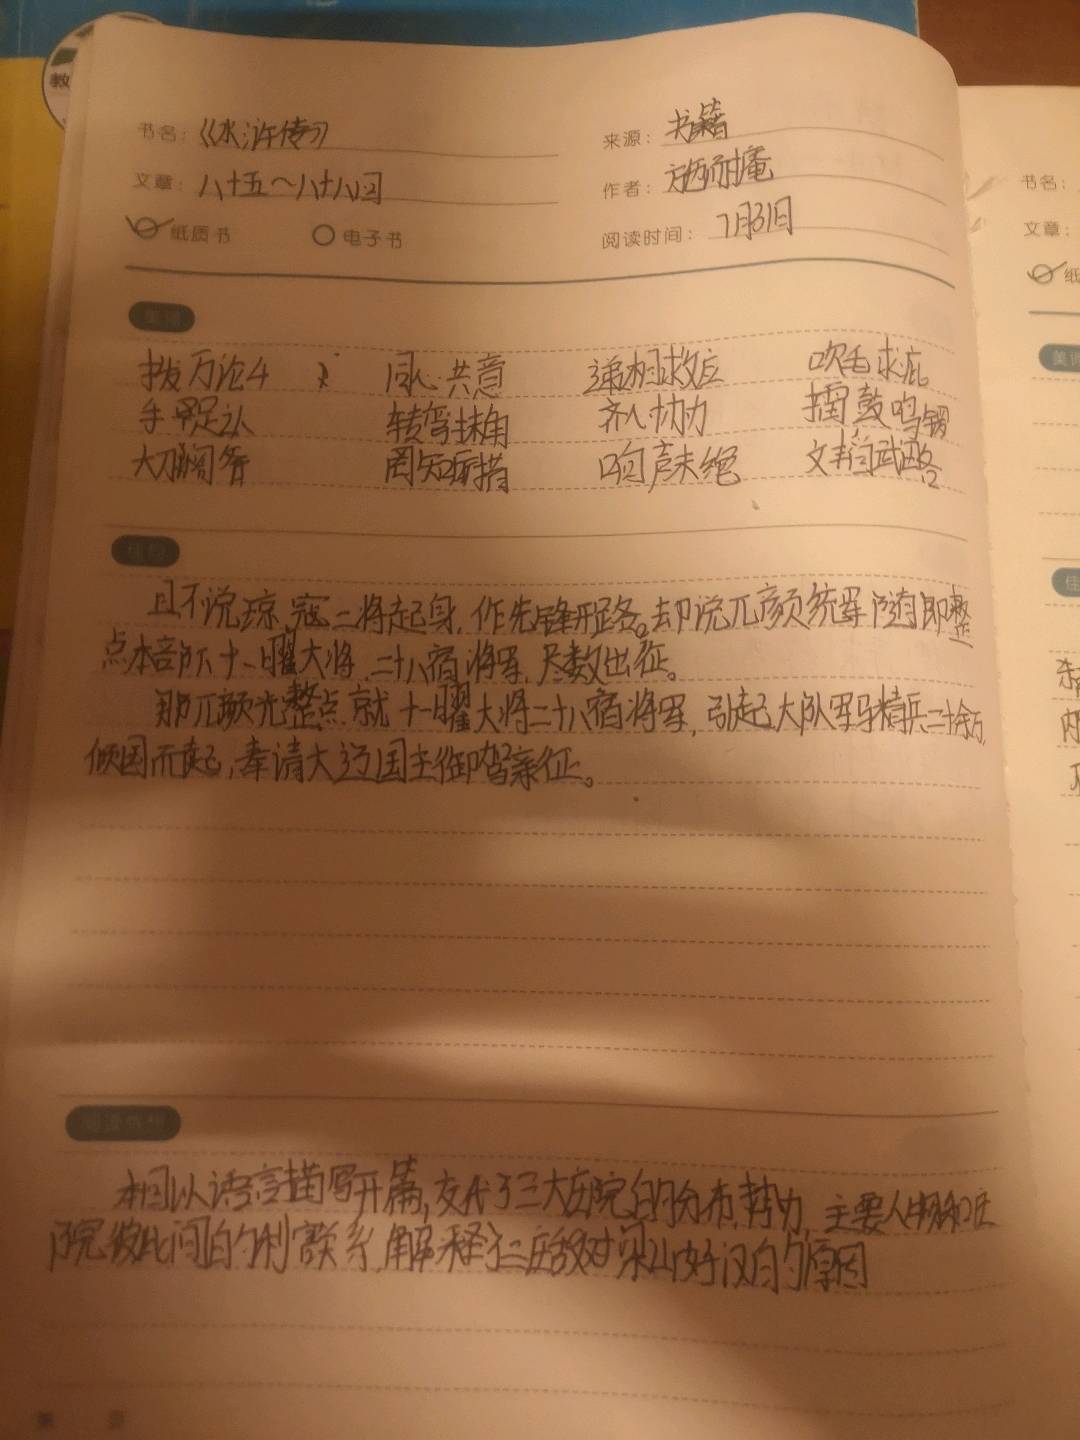 书名：《水浒传》 来源：书籍
文章：八十五～八十八回 作者：施耐庵
纸质书 电子书 阅读时间：7月31日
美词
同心共意 递相救应 吹毛求疵
转弯抹角 齐心协力 擂鼓鸣锣
罔知所措 响声未绝 文韬武略
佳句
且不说琼、寇二将起身，作先锋开路。却说兀颜统军随即整
点本部下十一曜大将，二十八宿将军，尽数出征。
那兀颜光整点就十一曜大将二十八宿将军，引起大队军马精兵二十余万，
倾国而起，奉请大辽国主御驾亲征。
阅读感想
本回以语言描写开篇，交代了三大庄院的分布，势力，主要人物和庄
院彼此间的利害关系，解释了二庄敌对梁山好汉的原因
第 页
书名：
文章：
纸
美词
佳